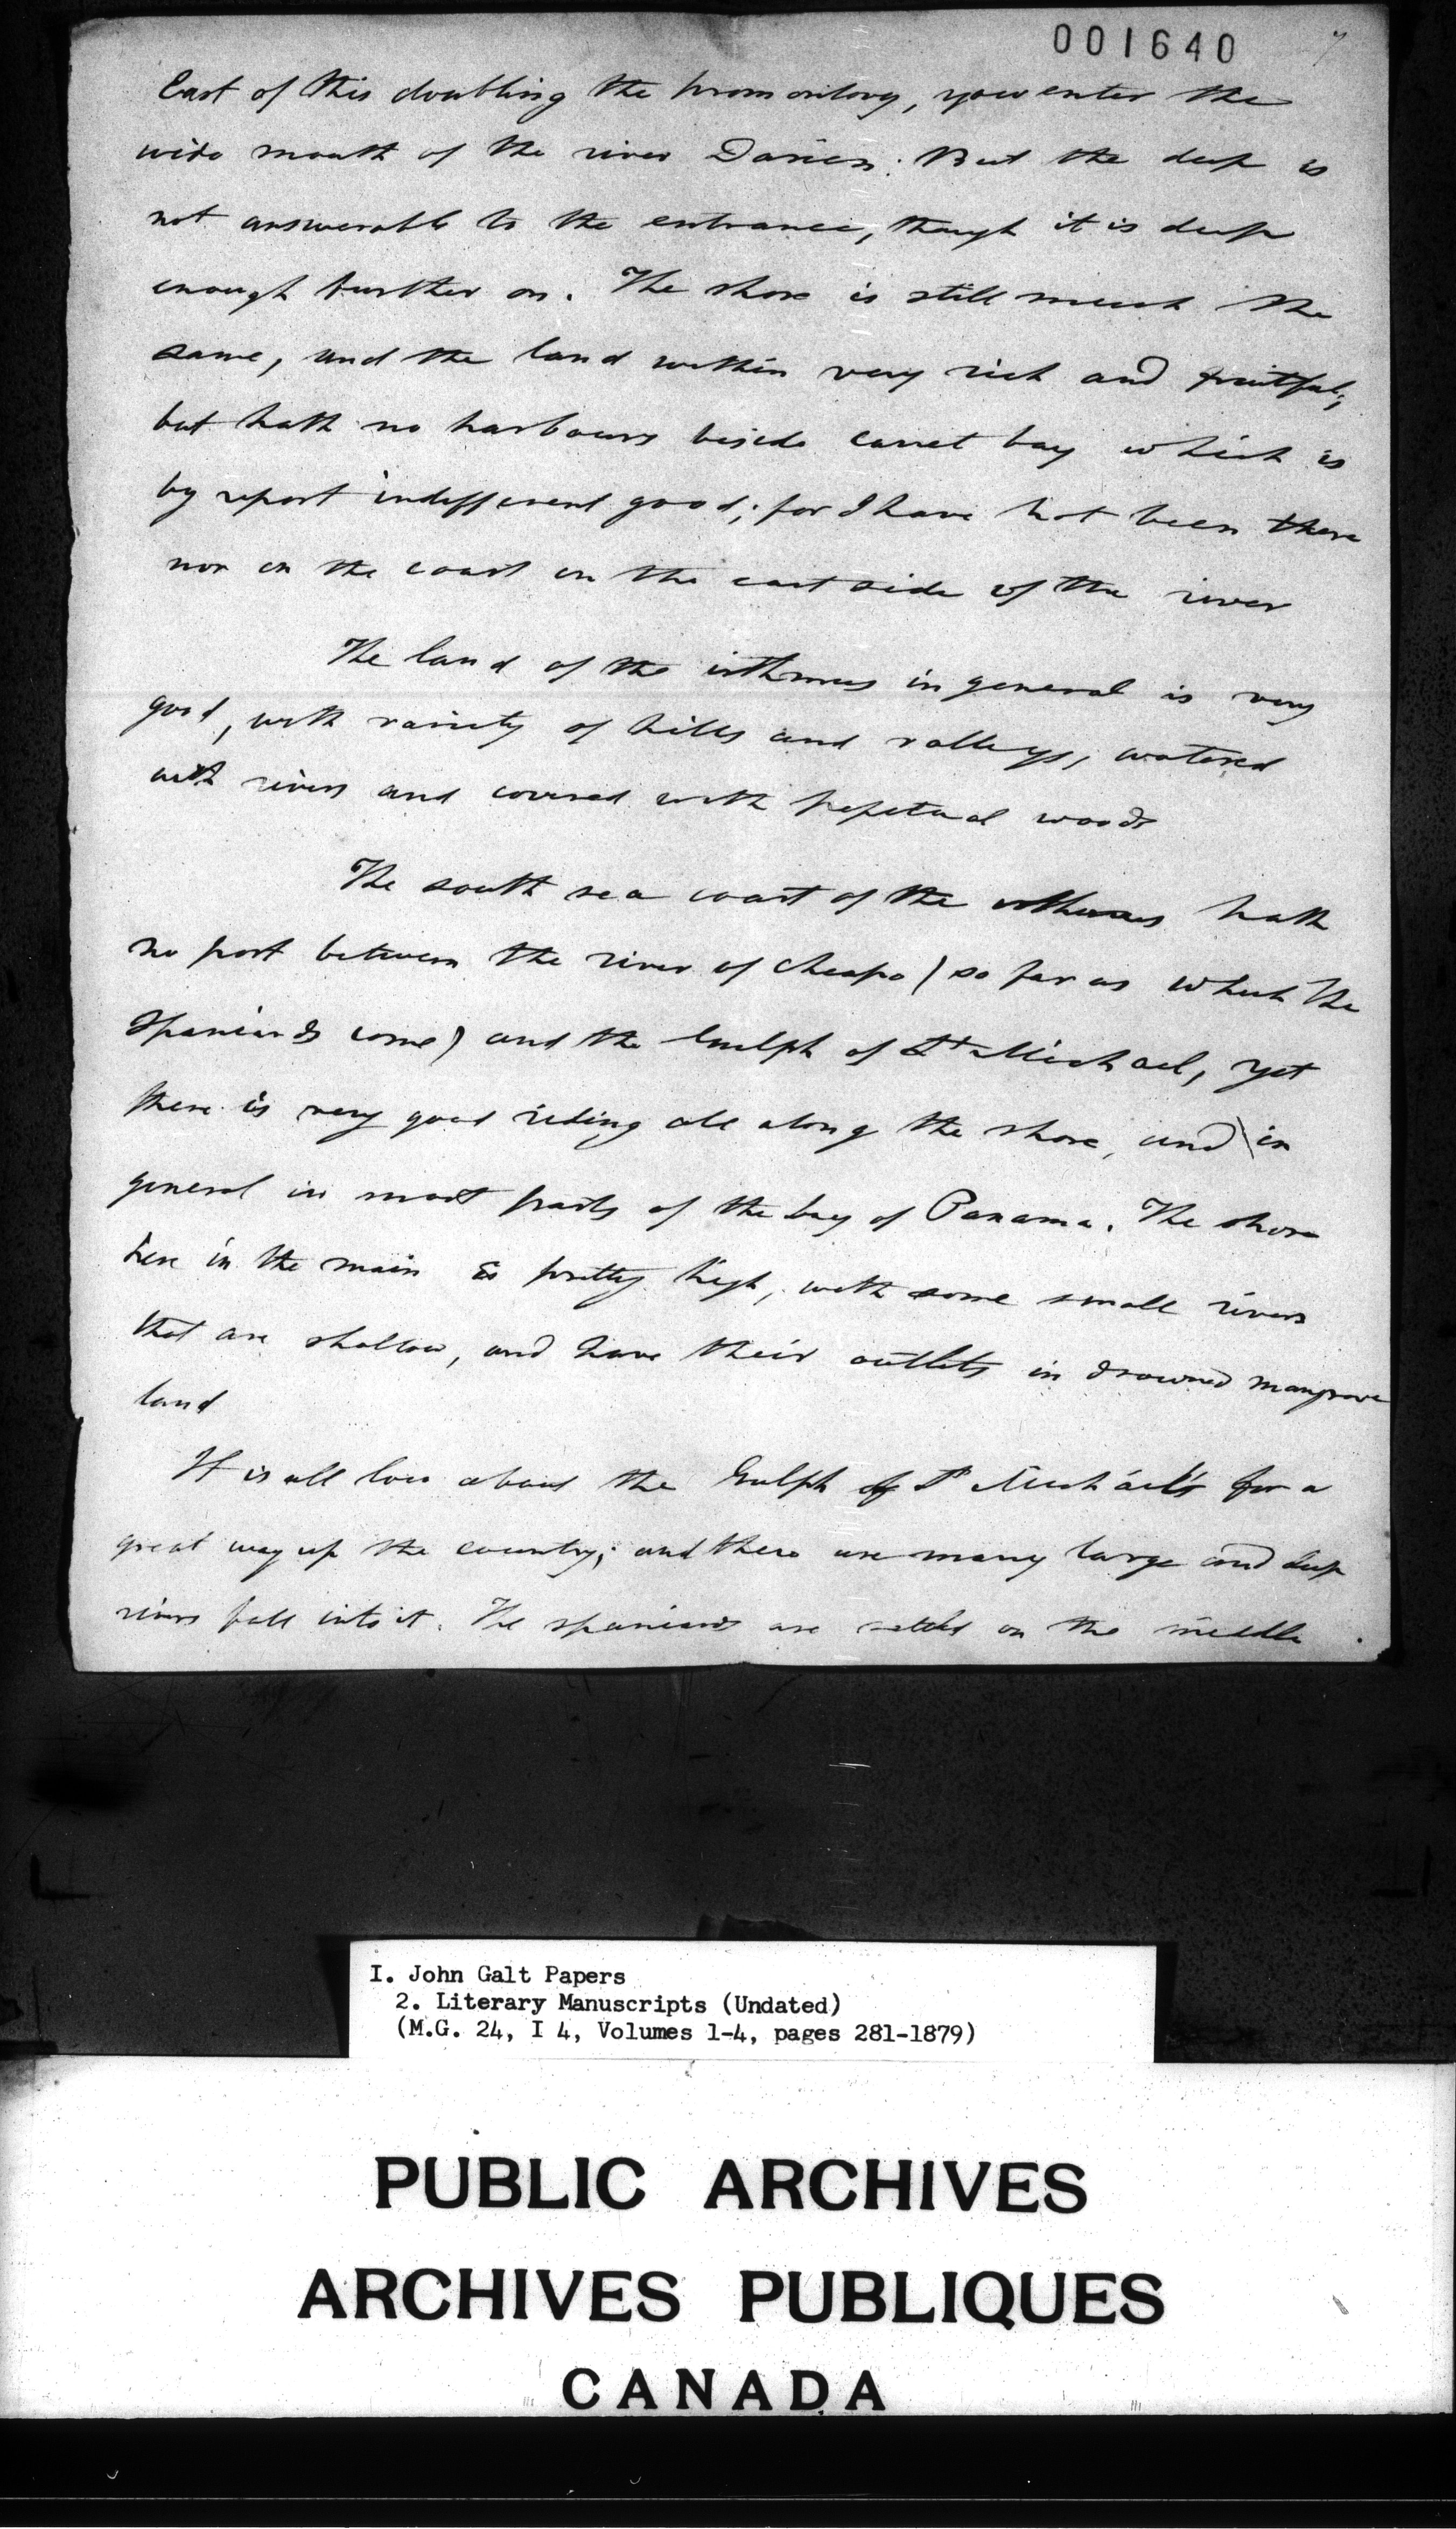 001640
East of this doubling the promontory, you enter the
wide mouth of the river Darien: But the deep is
not answerable to the entrance, though it is deep
enough further on. The shore is still much the
same, and the land within very rich and fruitful;
but hath no harbours beside carret bay which is
by report indifferent good; for I have not been there
nor on the coast on the east side of the river
The land of the isthmus in general is very
good, with variety of hills and valleys, watered
with rivers and covered with perpetual woods
The south sea coast of the isthmus hath
no port between the river of cheapo (so far as which the
Spaniards come) and the Gulph of St Michael, yet
there is very good riding all along the shore, and in
general in most parts of the bay of Panama. The shore
here in the main is pretty high, with some small rivers
that are shallow, and have their outlets in drowned mangrove
land
It is all low about the Gulph of St Michael's for a
great way up the country; and there are many large and deep
rivers fall into it. The spaniards are settled on the middle
I. John Galt Papers
2. Literary Manuscripts (Undated)
(M.G. 24, I 4, Volumes 1-4, pages 281-1879)
PUBLIC ARCHIVES
ARCHIVES PUBLIQUES
CANADA